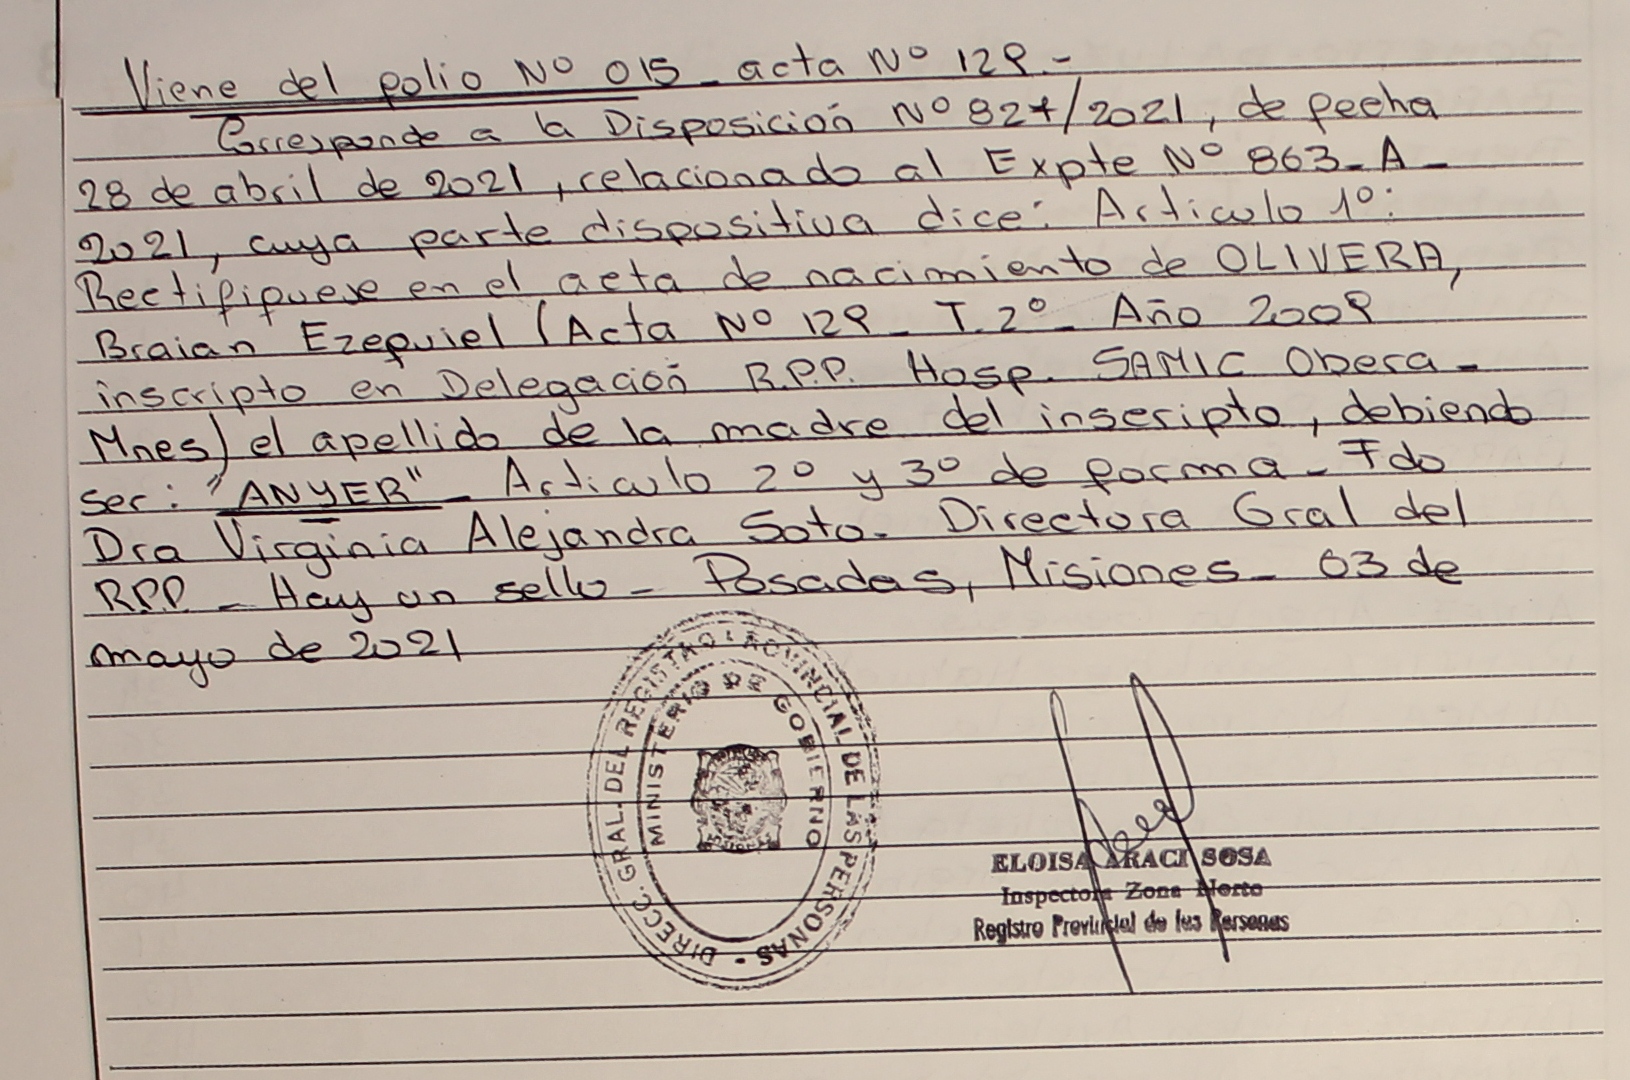 Viene del folio Nº 015 - acta Nº 129.-
Corresponde a la Disposición Nº 827/2021, de fecha
28 de abril de 2021, relacionado al Expte Nº 863-A-
2021, cuya parte dispositiva dice: Articulo 1º:
Rectifíquese en el acta de nacimiento de OLIVERA,
Braian Ezequiel (Acta Nº 129 - T. 2º - Año 2009
inscripto en Delegación R.P.P. Hosp. SAMIC Obera -
Mnes) el apellido de la madre del inscripto, debiendo
ser: "ANYER" - Articulo 2º y 3º de forma - Fdo
Dra Virginia Alejandra Soto. Directora Gral del
R.P.P. - Hay un sello - Posadas, Misiones - 03 de
mayo de 2021
DIRECC. GRAL. DEL REGISTRO PROVINCIAL DE LAS PERSONAS -
MINISTERIO DE GOBIERNO
ELOISA ARACI SOSA
Inspectora Zona Norte
Registro Provincial de las Personas